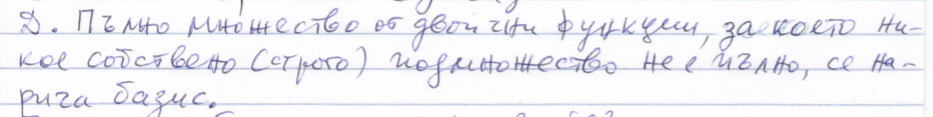 Д. Пълно множество от двоични функции, за което ни-
кое собствено (строго) подмножество не е пълно, се на-
рича базис.